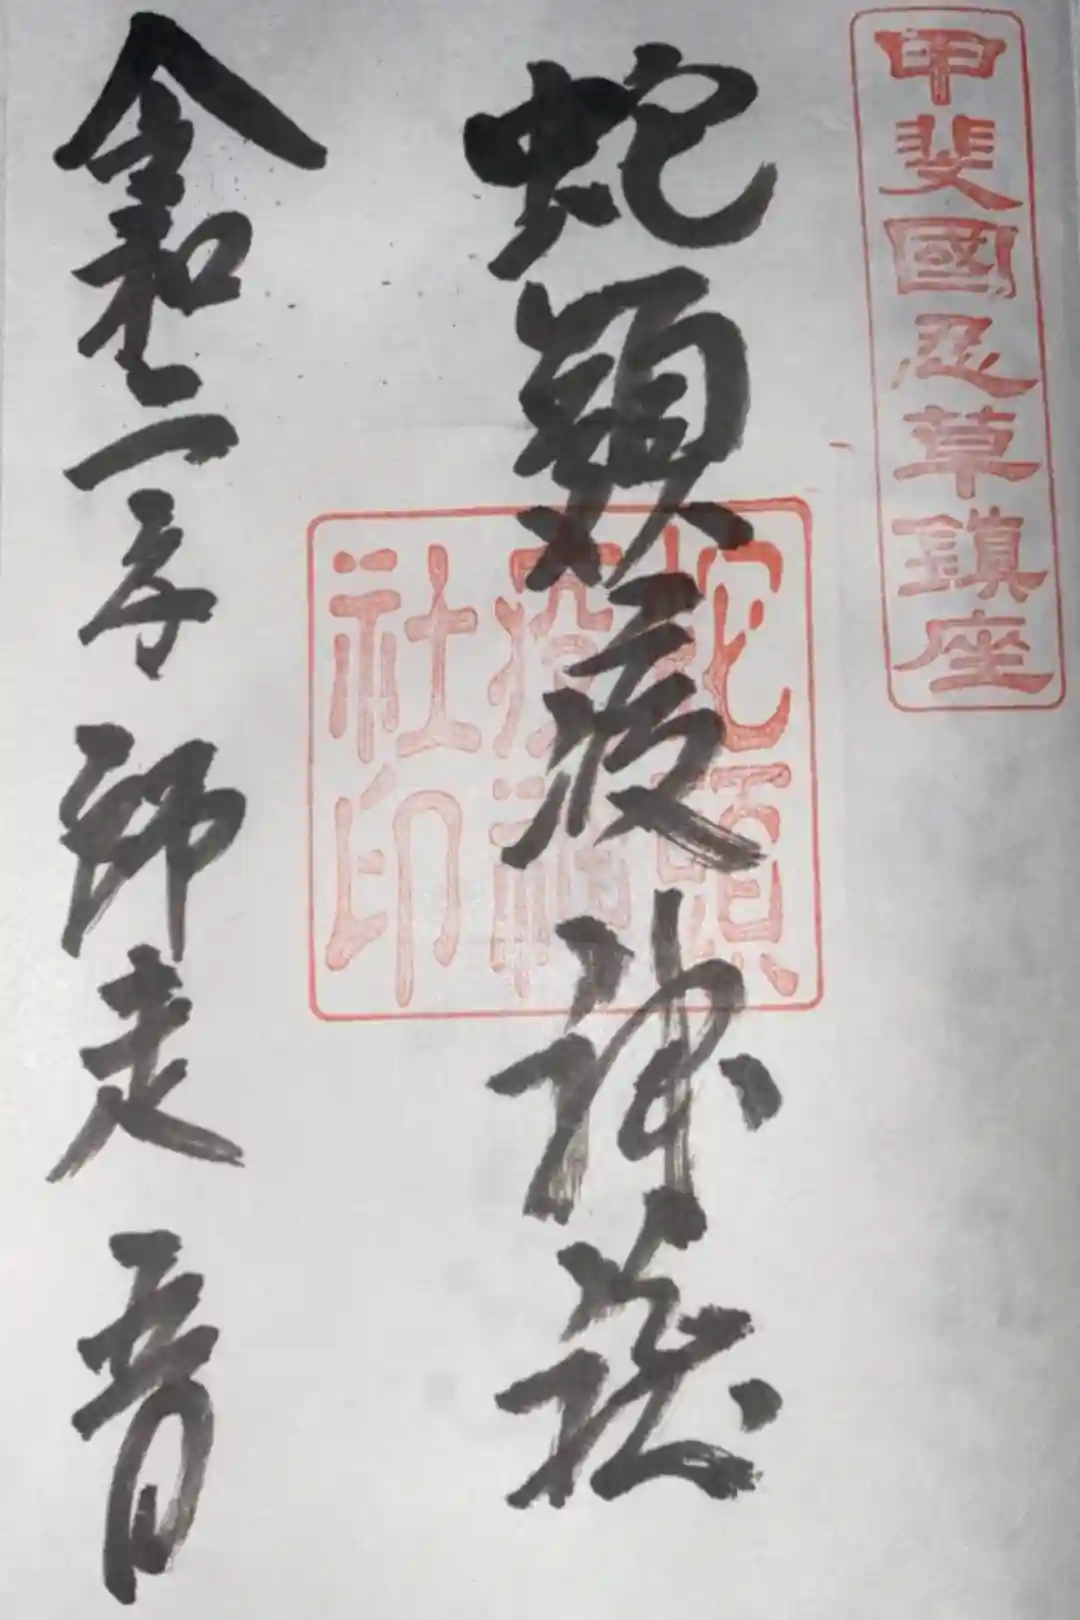 甲斐國忍草鎮座
蛇頭疫神社
蛇頭疫神社印
令和二年 師走 日